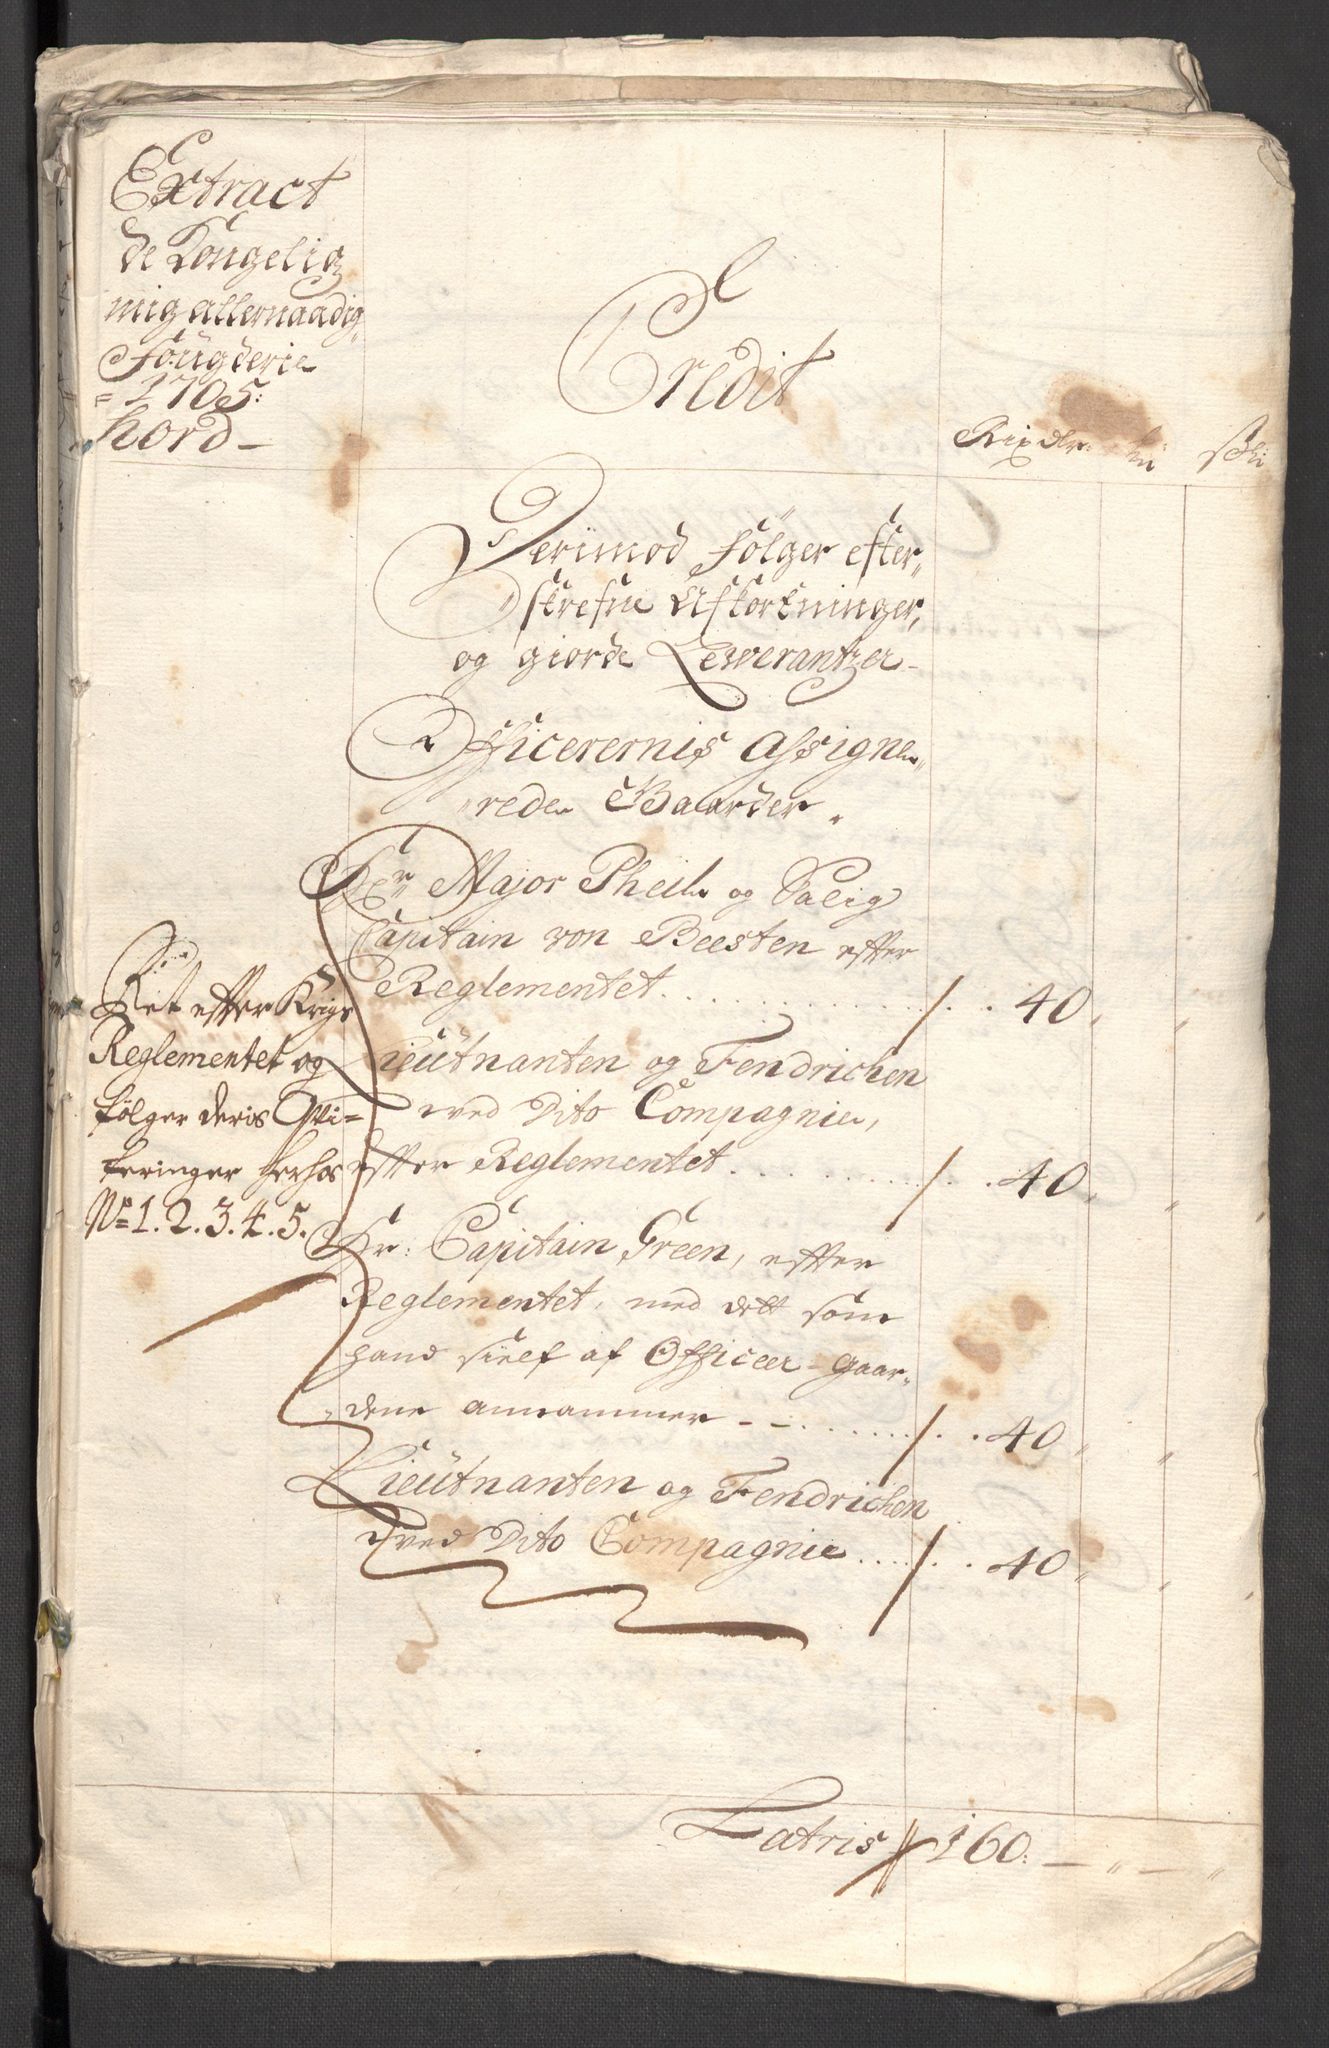 Extract
de Kongelig
mig allernaadig
Fougderie
= 1705:
hord –
Credit
Rixdlr: sk:
Derimod følger efter„
„skrefne Afkortninger,
og giorde Lewerantzer –
Officerernis Assigne„
„rede Baarder.
Hr Major Pheil og Salig
Capitain von Beesten effter
Reglementet . . . . 40 „ „
Lieutnanten og Fendrichen
wed Dito Compagnie,
effter Reglementet . . . . 40 „ „
Hr: Capitain Green, effter
Reglementet, med dett som
hand sielf af Officeer-Gaar„
„dene annammer – – . . . . 40 „ „
Lieutnanten og Fendrichen
wed Dito Compagnie . . . . 40 „ „
Ret effter Krigs
Reglementet og
følger deris Qvi=
teringer herhos
No 1. 2. 3. 4. 5.
Latris 160: – „ – „